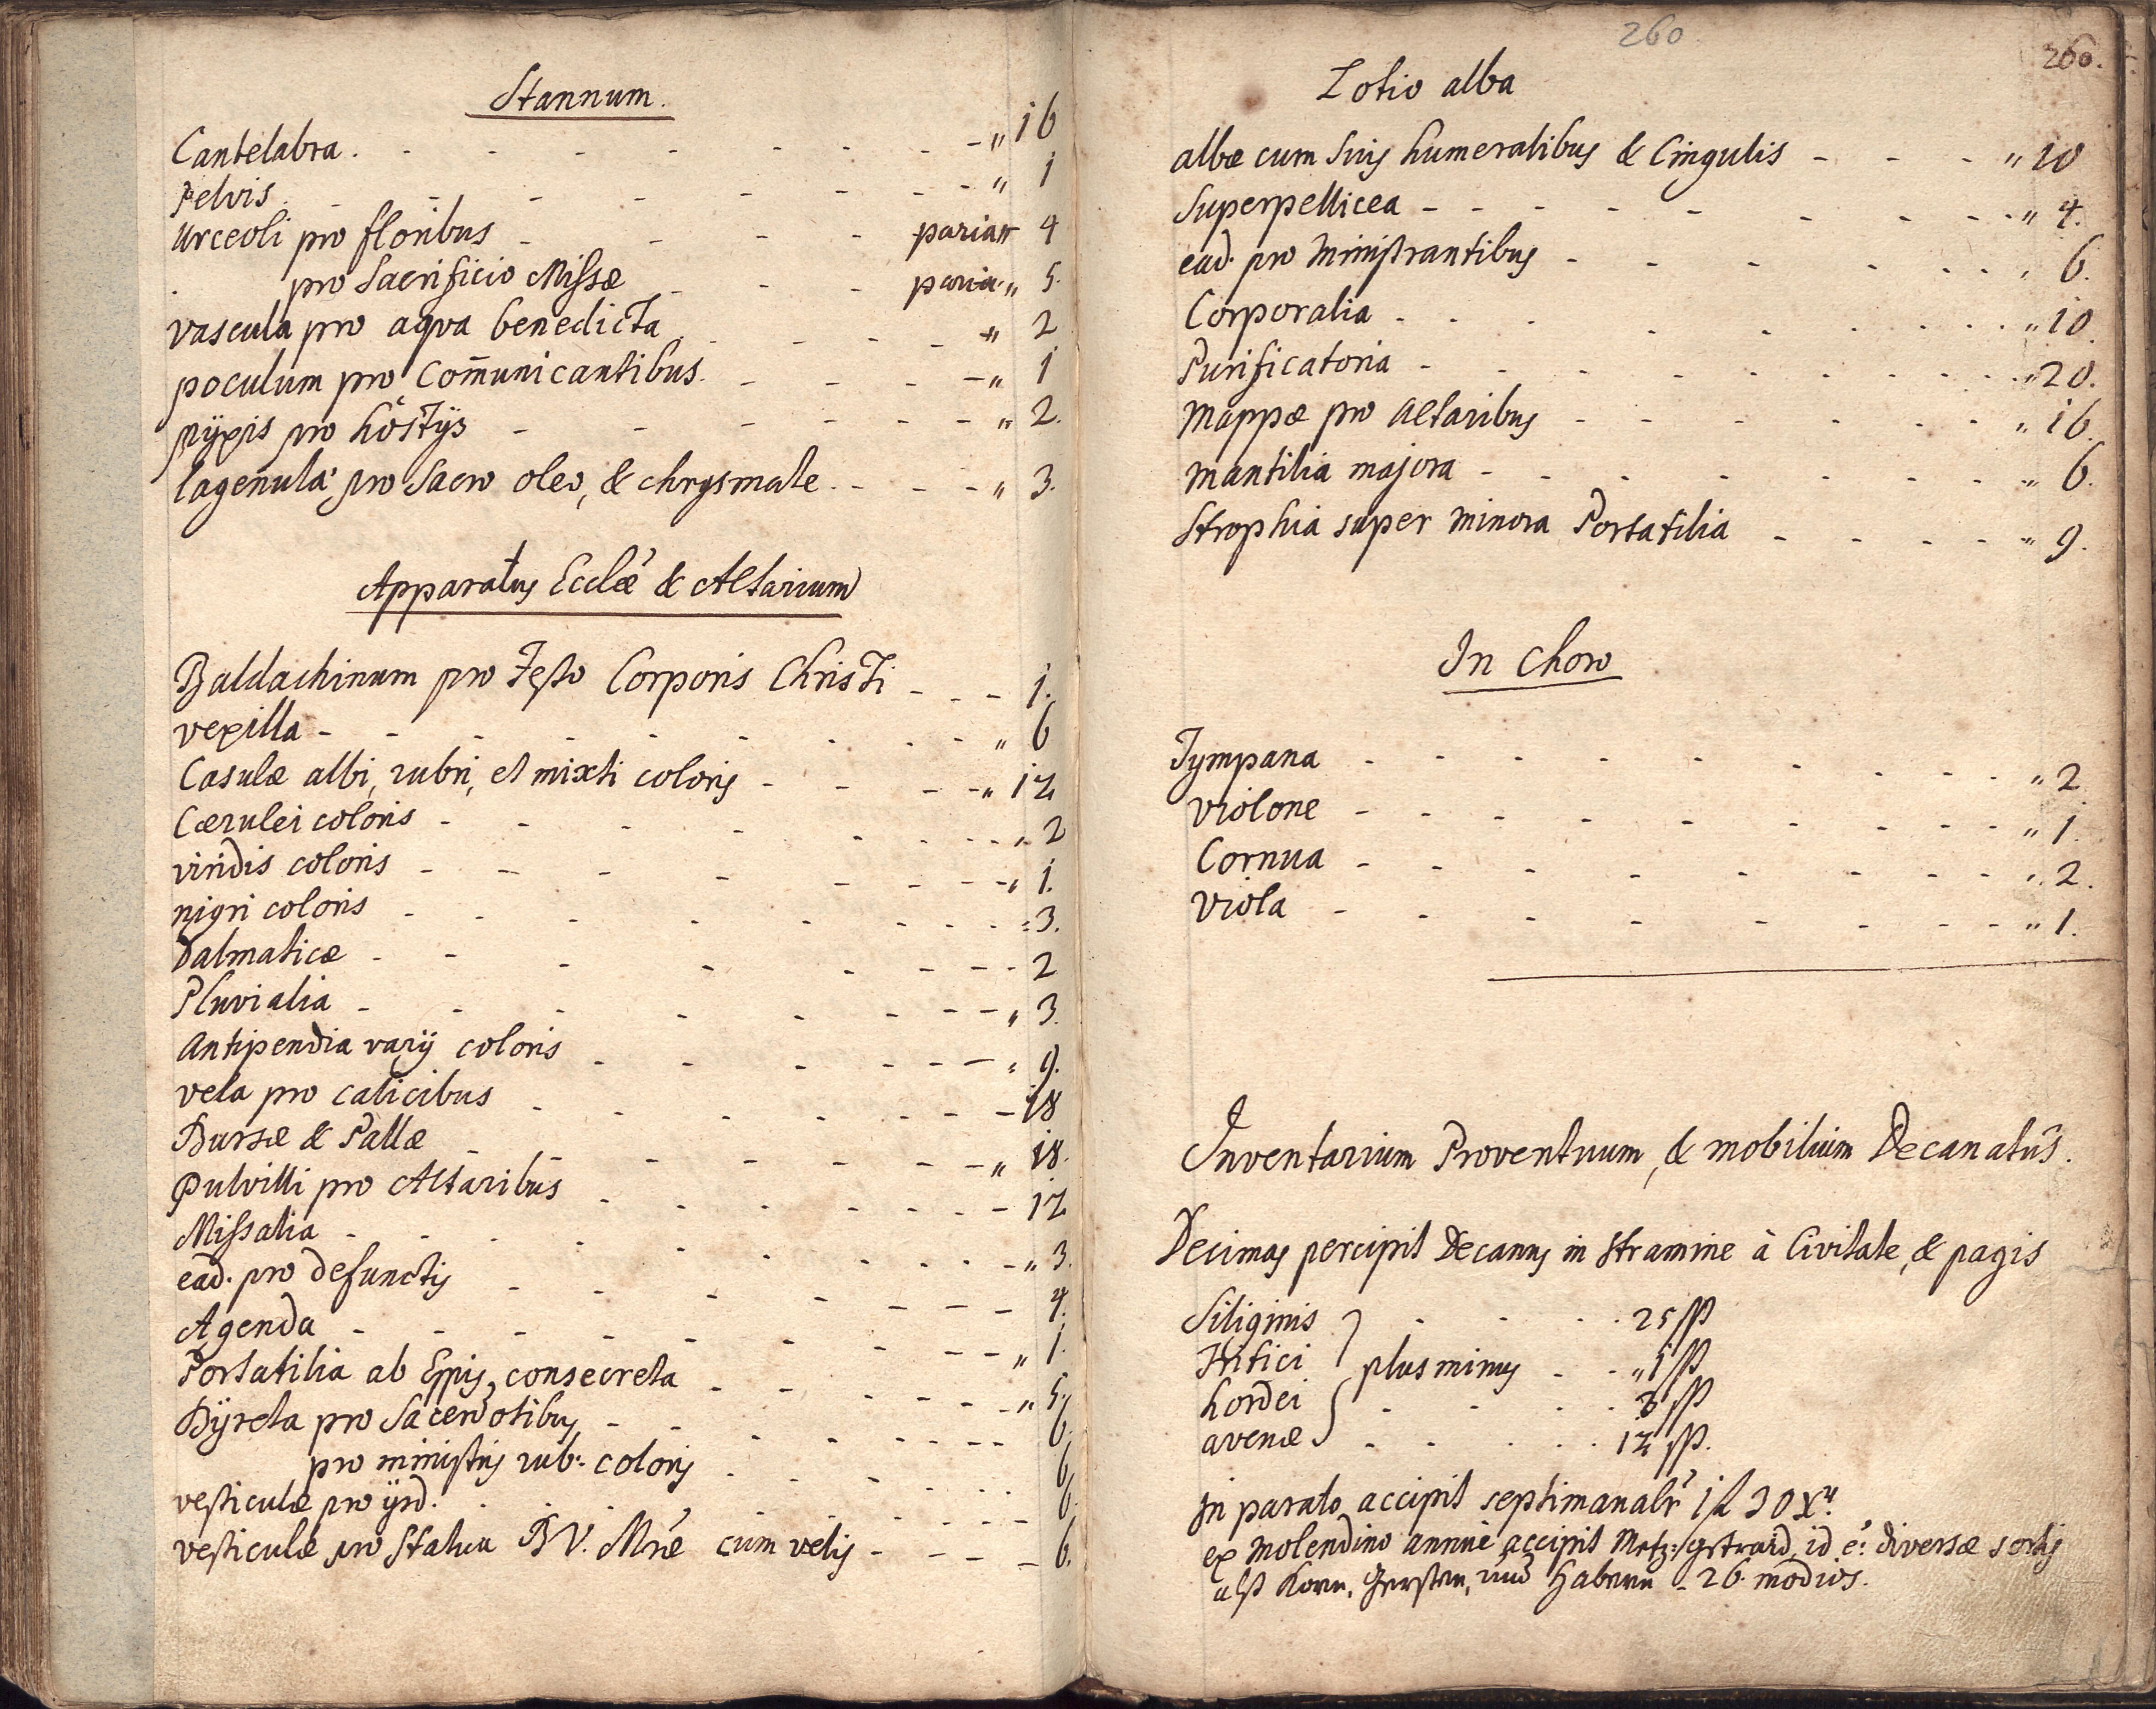 Stannum.
Cantelabra. - - - - - - - - „ 16
Pelvis. - - - - - - - „ 1
Urceoli pro floribus - - - - paria „ 4
pro Sacrificio Missæ - - - paria „ 5.
vascula pro aqva benedicta - - - - „ 2
poculum pro Com̄unicantibus. - - - - „ 1
pÿxis pro hostÿs - - - - - - „ 2.
lagenula pro Sacro oleo, & chrysmate. - - - „ 3.
Apparatus Eccłæ & Altarium
Baldachinum pro Festo Corporis Christi - - - 1.
vexilla - - - - - - - - - „ 6
Casulæ albi, rubri, et mixti coloris - - - - „ 12
Cærulei coloris - - - - - - - „ 2
viridis coloris - - - - - - - „ 1.
nigri coloris - - - - - - - „ 3.
Dalmaticæ - - - - - - - - 2
Pluvialia - - - - - - - - „ 3.
Antipendia varÿ coloris - - - - - - „ 9.
vela pro calicibus - - - - - - - 18
Bursæ & Pallæ - - - - - - - „ 18.
Pulvilli pro Altaribus - - - - - - 12
Missalia - - - - - - - - „ 3.
ead. pro defunctis - - - - - - - 4.
Agenda - - - - - - - - „ 1.
Portatilia ab Eppis, consecreta - - - - - „ 5.
Bÿreta pro Sacerdotibus - - - - - - 6.
pro ministris rub: coloris - - - - - 6
vesticulæ pro ijsd. - - - - - - - 6.
vesticulæ pro Statua B V. Mræ cum velis - - - - 6.
260
260.
Lotio alba
albæ cum Suis humeralibus & Cingulis - - - „ 10
Superpellicea - - - - - - - - „ 4.
ead. pro Ministrantibus - - - - - - „ 6.
Corporalia - - - - - - - - „ 10.
Purificatoria - - - - - - - - „ 20.
Mappæ pro Altaribus - - - - - - „ 16.
Mantilia majora - - - - - - - „ 6.
Strophia super minora Portatilia - - - - „ 9.
In Choro
Tympana - - - - - - - - „ 2
violone - - - - - - - - „ 1.
Cornua - - - - - - - - „ 2.
viola - - - - - - - - „ 1.
Inventarium Proventuum, & mobilium Decanatûs.
Decimas percipit Decanus in Stramine à Civitate, & pagis
Siliginis } - - - - 25 ß
Tritici plus minus - - „ 1 ß
hordei - - - - 3 ß
avenæ } - - - - 12 ß.
In parato accipit septimanalr̃ 1 f 30 Xr.
ex Molendino annuè accipit Metz: gstraid, id ẽ: diversæ sortis
alß Korn, Gersten, und Habern - 26 modios.